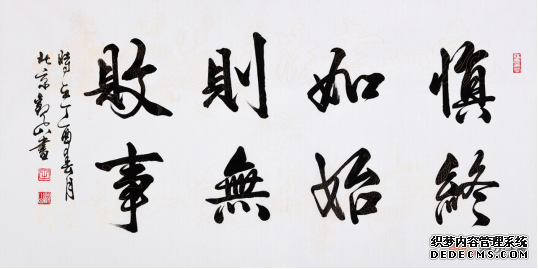 慎終
如始
則無
敗事
時在丁酉春月
北京書
织梦内容管理系统
DEDECMS.COM